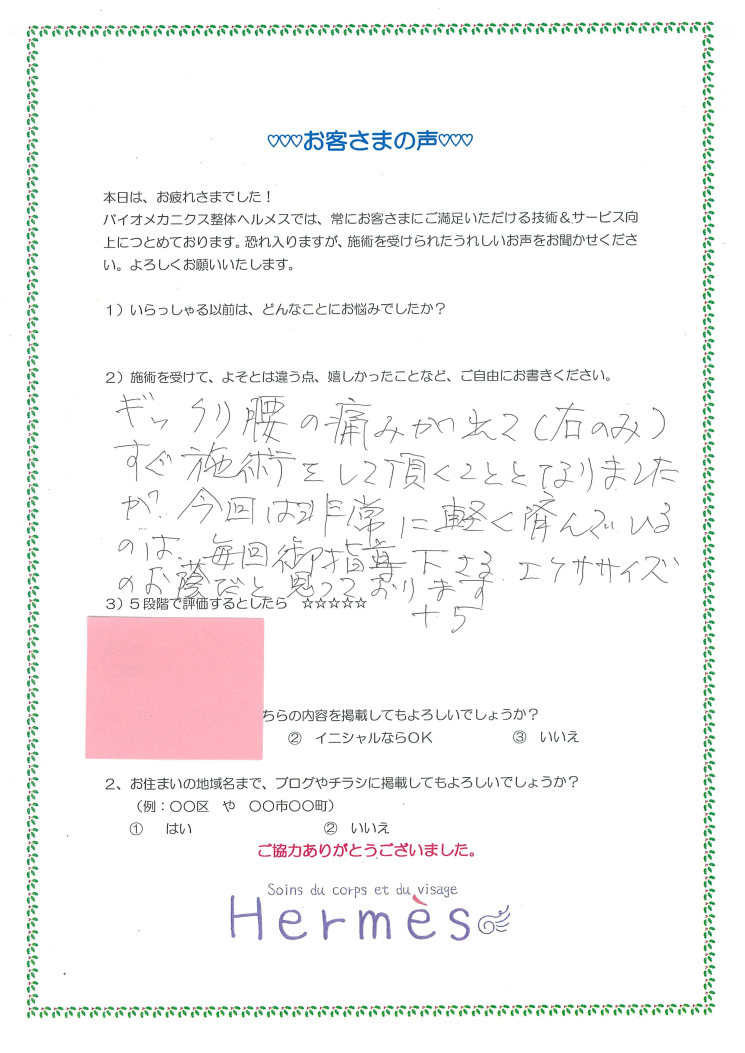 ♡♡♡お客さまの声♡♡♡
本日は、お疲れさまでした！
バイオメカニクス整体ヘルメスでは、常にお客さまにご満足いただける技術＆サービス向
上につとめております。恐れ入りますが、施術を受けられたうれしいお声をお聞かせくださ
い。よろしくお願いいたします。
１）いらっしゃる以前は、どんなことにお悩みでしたか？
２）施術を受けて、よそとは違う点、嬉しかったことなど、ご自由にお書きください。
ギックリ腰の痛みが出て（右のみ）
すぐ施術をして頂くこととなりました
が、今回は非常に軽く済んでいる
のは、毎回御指導下さる エクササイズ
のお蔭だと思っております
３）５段階で評価するとしたら　☆☆☆☆☆
＋５
ちらの内容を掲載してもよろしいでしょうか？
②　イニシャルならＯＫ　③　いいえ
２、お住まいの地域名まで、ブログやチラシに掲載してもよろしいでしょうか？
（例：〇〇区　や　〇〇市〇〇町）
①　はい　②　いいえ
ご協力ありがとうございました。
Soins du corps et du visage
Hermès